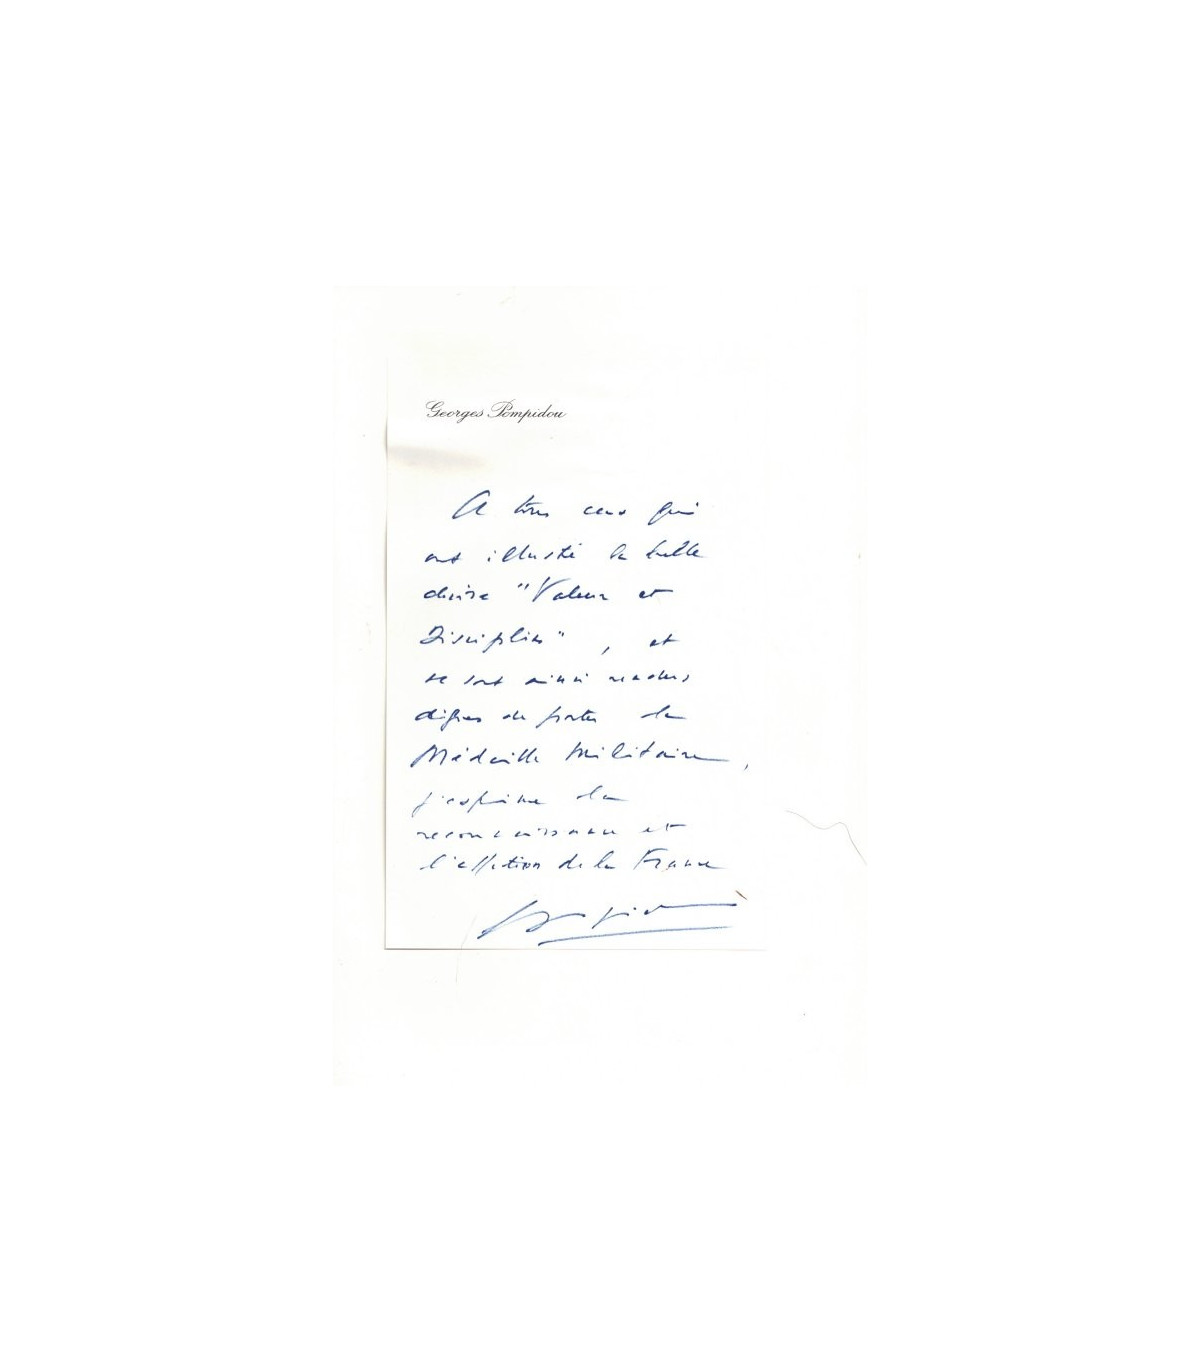 Georges Pompidou
A tous ceux qui
ont illustré la belle
devise "Valeur et
Discipline", et
se sont ainsi rendus
dignes de porter la
Médaille Militaire,
j'exprime la
reconnaissance et
l'affection de la France
Pompidou